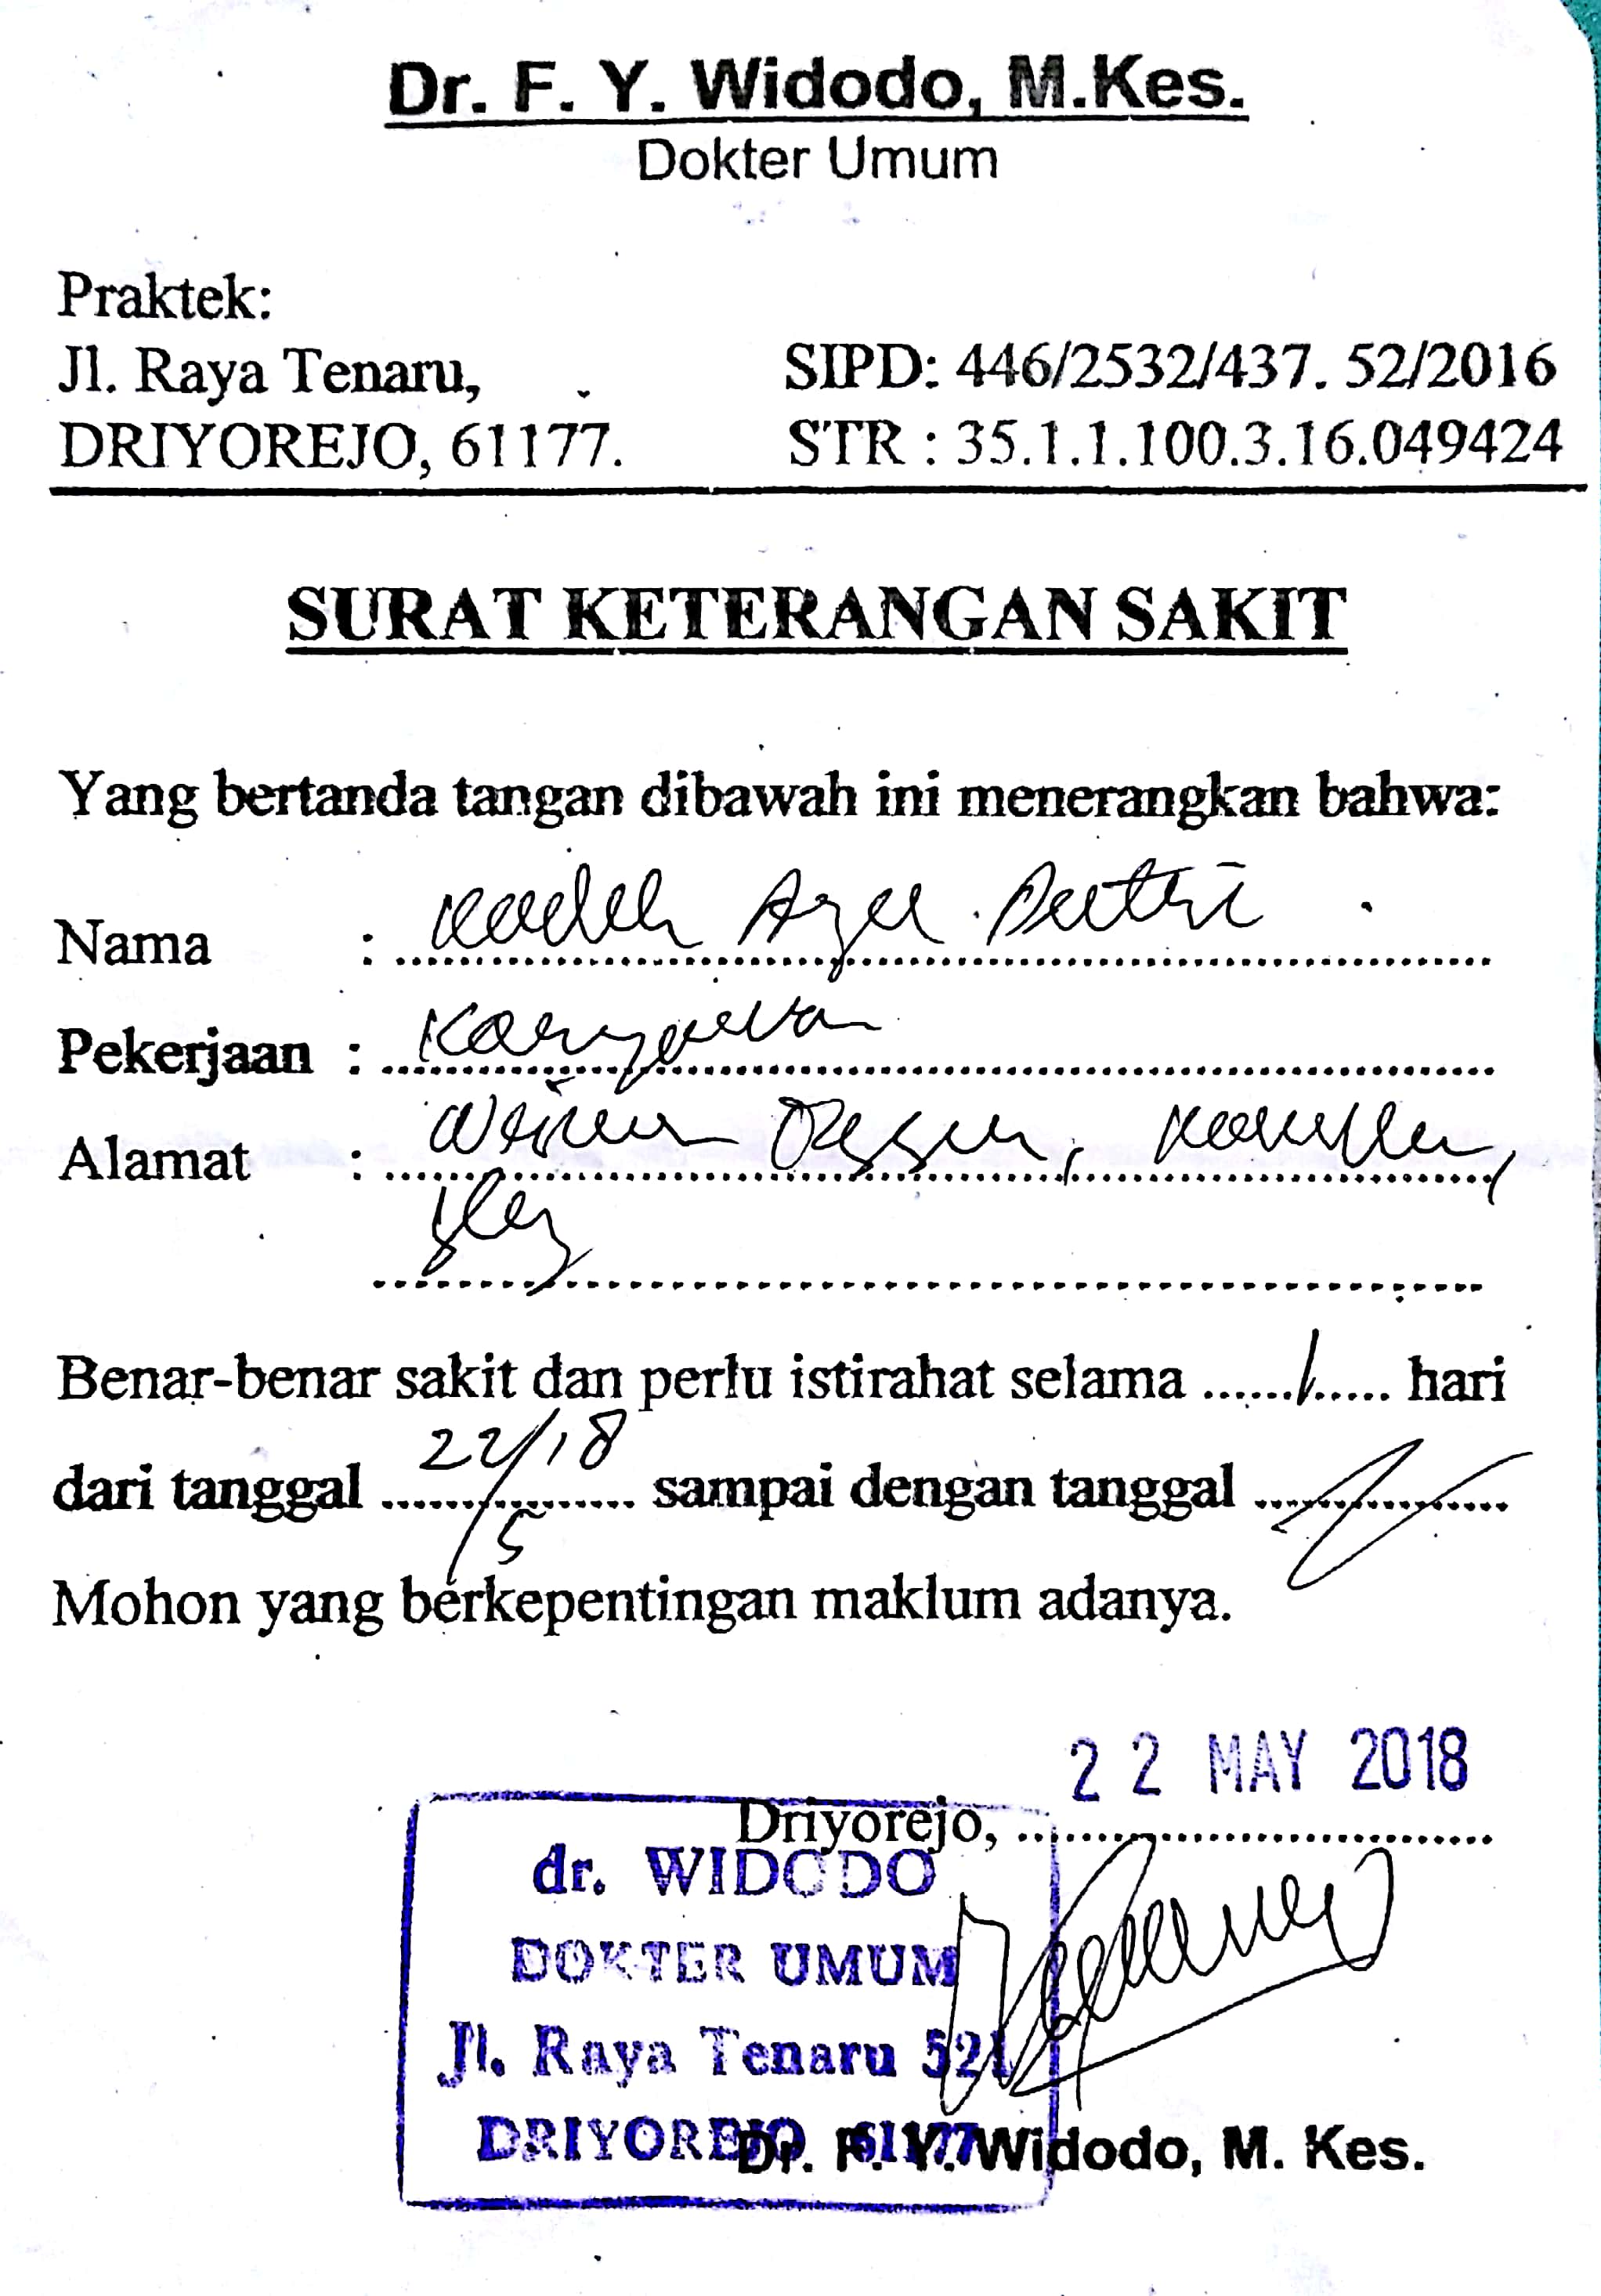 Dr. F. Y. Widodo, M.Kes.
Dokter Umum
Praktek:
Jl. Raya Tenaru,
SIPD: 446/2532/437. 52/2016
DRIYOREJO, 61177.
STR : 35.1.1.100.3.16.049424
SURAT KETERANGAN SAKIT
Yang bertanda tangan dibawah ini menerangkan bahwa:
Nama : Kadek Ayu Putri
Pekerjaan : Karyawan
Alamat :
Benar-benar sakit dan perlu istirahat selama ......1..... hari
dari tanggal 22/5 18 sampai dengan tanggal ................
Mohon yang berkepentingan maklum adanya.
22 MAY 2018
Driyorejo, ..............................
dr. WIDODO
DOKTER UMUM
Jl. Raya Tenaru 521
DRIYOREJO 61177
Dr. F. Y. Widodo, M. Kes.